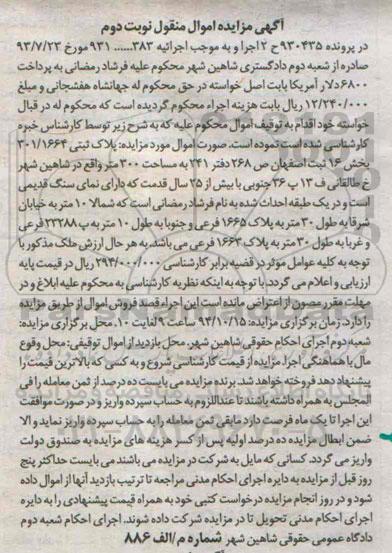 آگهی مزایده اموال منقول نوبت دوم
در پرونده ۹۳۰۴۳۵ ح ۲ اجرا و به موجب اجرائیه ۳۸۳...... ۹۳۱ مورخ ۹۳/۷/۲۳
صادره از شعبه دوم دادگستری شاهین شهر محکوم علیه فرشاد رمضانی به پرداخت
۶۸۰۰ دلار آمریکا بابت اصل خواسته در حق محکوم له جهانشاه هفشجانی و مبلغ
۱۲/۲۴۰/۰۰۰ ریال بابت هزینه اجراء محکوم گردیده است که محکوم له در قبال
خواسته خود اقدام به توقیف اموال محکوم علیه که به شرح زیر توسط کارشناس خبره
کارشناسی شده است نموده است. صورت اموال مورد مزایده: پلاک ثبتی ۳۰۱/۱۶۶۴
بخش ۱۶ ثبت اصفهان ص ۲۶۸ دفتر ۲۴۱ به مساحت ۳۰۰ متر واقع در شاهین شهر
خ طالقانی ف ۱۳ پ ۳۶ جنوبی با بیش از ۲۵ سال قدمت که دارای نمای سنگ قدیمی
است و در یک طبقه احداث شده به نام فرشاد رمضانی است که شمالا ۱۰ متر به خیابان
شرقا به طول ۳۰ متر به پلاک ۱۶۶۵ فرعی و جنوبا به طول ۱۰ متر به پ ۲۳۲۸۸ فرعی
و غربا به طول ۳۰ متر به پلاک ۱۶۶۳ فرعی می باشد. به هر حال ارزش ملک مذکور با
توجه به کلیه عوامل موثر در قضیه برابر کارشناسی ۲۹۴/۰۰۰/۰۰۰ ریال در قیمت پایه
ارزیابی و اعلام می گردد. با توجه به اینکه نظریه کارشناسی به محکوم علیه ابلاغ و در
مهلت مقرر مصون از اعتراض مانده است این اجراء قصد فروش اموال از طریق مزایده
را دارد. زمان برگزاری مزایده: ۹۴/۱۰/۱۵ ساعت ۹ لغایت ۱۰. محل برگزاری مزایده:
شعبه دوم اجرای احکام حقوقی شاهین شهر. محل بازدید از اموال توقیفی: محل وقوع
مال با هماهنگی اجرا. مزایده از قیمت کارشناسی شروع و به کسی که بالاترین قیمت را
پیشنهاد دهد فروخته خواهد شد. برنده مزایده می بایست ده درصد از ثمن معامله را فی
المجلس به همراه داشته باشند تا عنداللزوم به حساب سپرده واریز و در صورت موافقت
این اجرا تا یک ماه فرصت دارد مابقی ثمن معامله را به حساب سپرده واریز نماید و الا
ضمن ابطال مزایده ده درصد اولیه پس از کسر هزینه های مزایده به صندوق دولت
واریز می گردد. کسانی که مایل به شرکت در مزایده می باشند می بایست حداکثر پنج
روز قبل از مزایده به دایره اجرای احکام مدنی مراجعه تا ترتیب بازدید آنها از اموال داده
شود و در روز انجام مزایده درخواست کتبی خود به همراه قیمت پیشنهادی را به دایره
اجرای احکام مدنی تحویل تا در مزایده شرکت داده شوند. اجرای احکام شعبه دوم
دادگاه عمومی حقوقی شاهین شهر شماره م/الف ۸۸۶